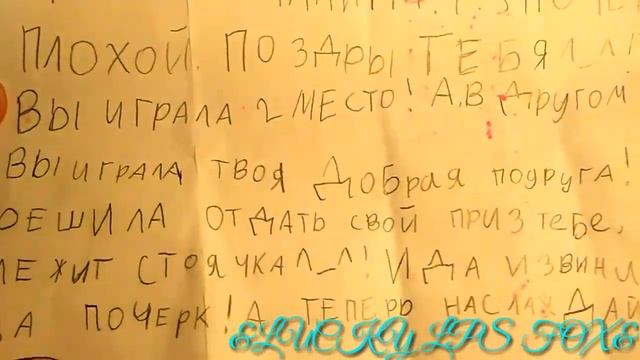 ПЛОХОЙ. ПОЗДРЫ ТЕБЯ ^_^!
ВЫИГРАЛА 2 МЕСТО! А, В ДРУГОМ
ВЫИГРАЛА ТВОЯ ДОБРАЯ ПОДРУГА!
РЕШИЛА ОТДАТЬ СВОЙ ПРИЗ ТЕБЕ,
ЛЕЖИТ СТОЯЧКА ^_^! И ДА ИЗВИНИ
ЗА ПОЧЕРК! А ТЕПЕРЬ НАСЛАЖДАЙ
ELUCKY LPS FOXE